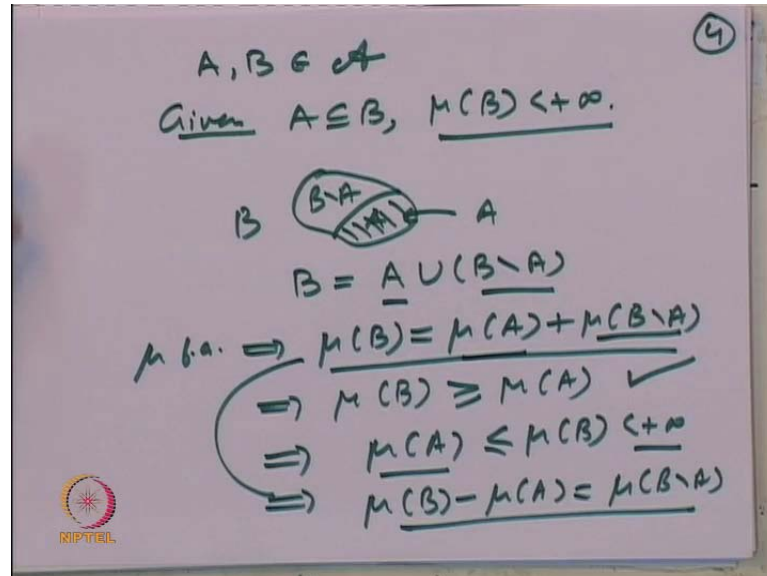 4
A, B ∈ 𝒜
Given A ⊆ B, μ(B) < +∞.
B B\A A A
B = A ∪ (B \ A)
μ f.a. ⇒ μ(B) = μ(A) + μ(B\A)
⇒ μ(B) ≥ μ(A) ✓
⇒ μ(A) ≤ μ(B) < +∞
⇒ μ(B) - μ(A) = μ(B\A)
NPTEL